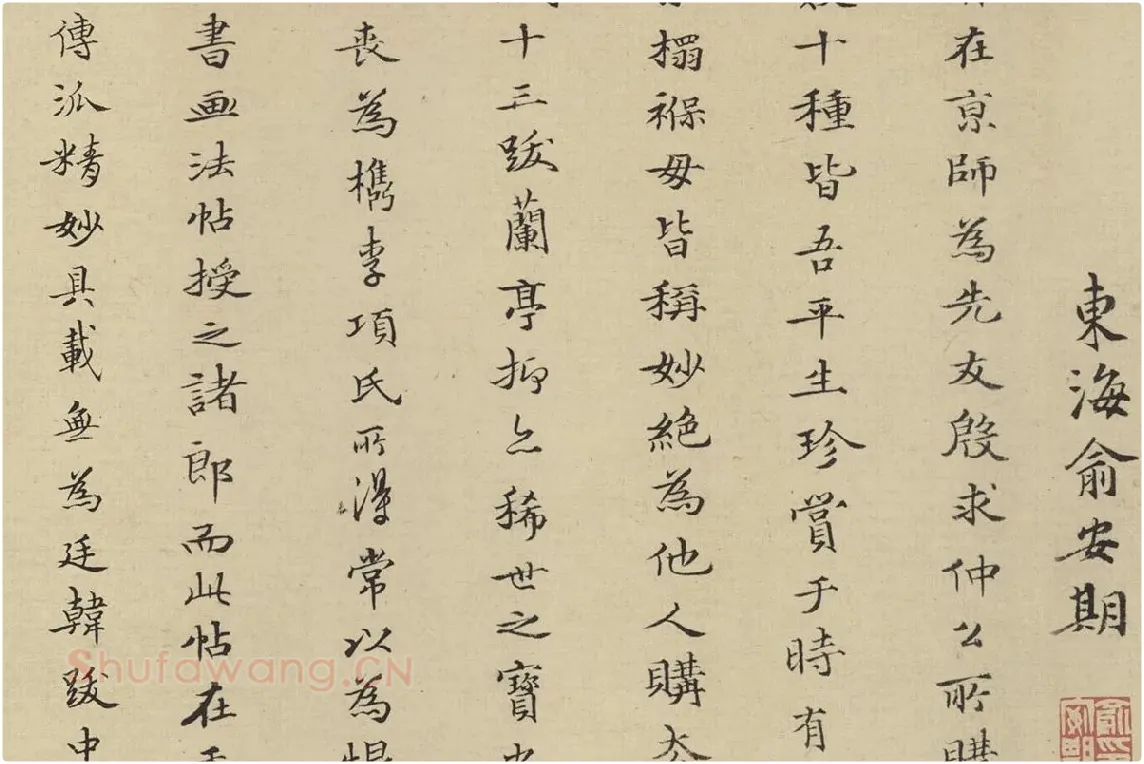 東海俞安期
在京師為先友殷求仲公所購
十種皆吾平生珍賞于時有
搨褓毋皆稱妙絕為他人購去
十三跋蘭亭抑亦稀世之寶也
喪為檇李項氏所得常以為恨
書畫法帖授之諸郎而此帖在
傳派精妙具載無為廷韓跋中
Shufawang.CN